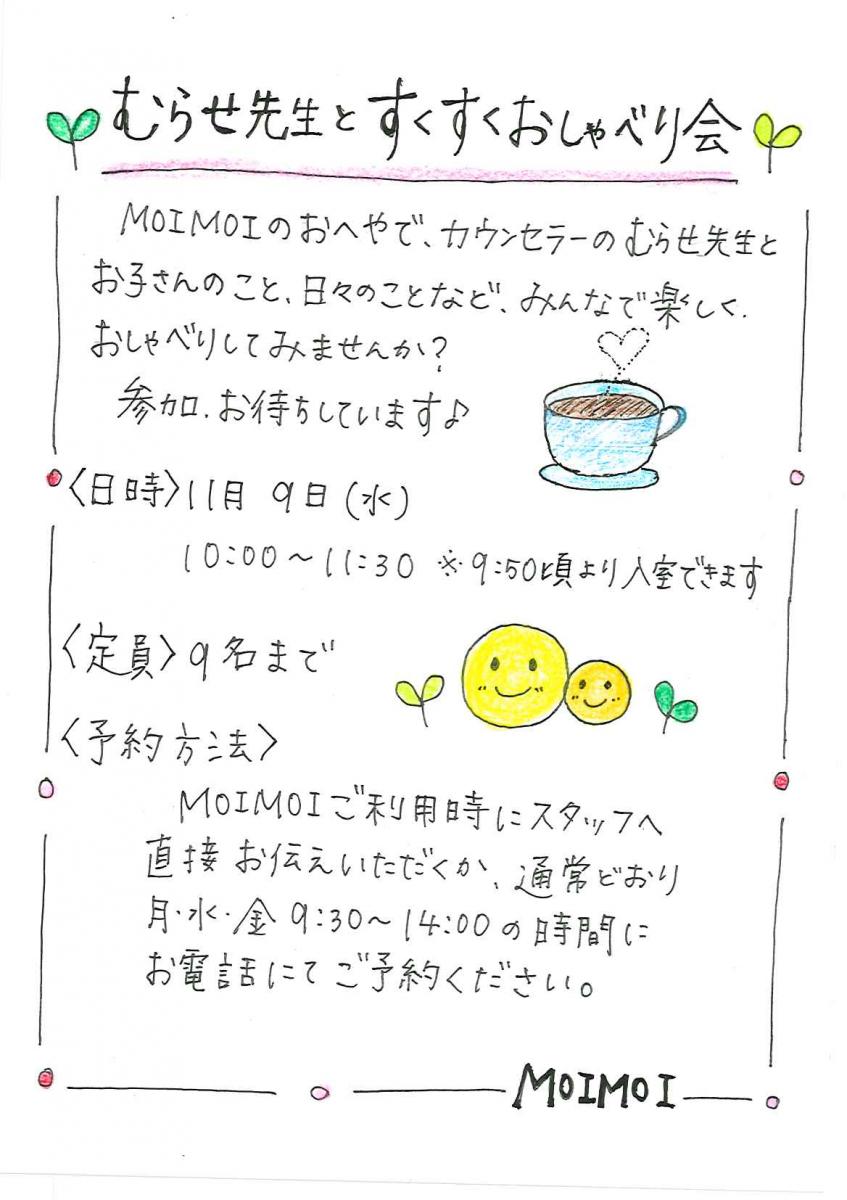 むらせ先生とすくすくおしゃべり会
MOIMOIのおへやで、カウンセラーのむらせ先生と
お子さんのこと、日々のことなど、みんなで楽しく、
おしゃべりしてみませんか?
参加、お待ちしています♪
〈日時〉11月 9日(水)
10:00~11:30 ※9:50頃より入室できます
〈定員〉9名まで
〈予約方法〉
MOIMOIご利用時にスタッフへ
直接お伝えいただくか、通常どおり
月・水・金 9:30~14:00の時間に
お電話にてご予約ください。
MOIMOI